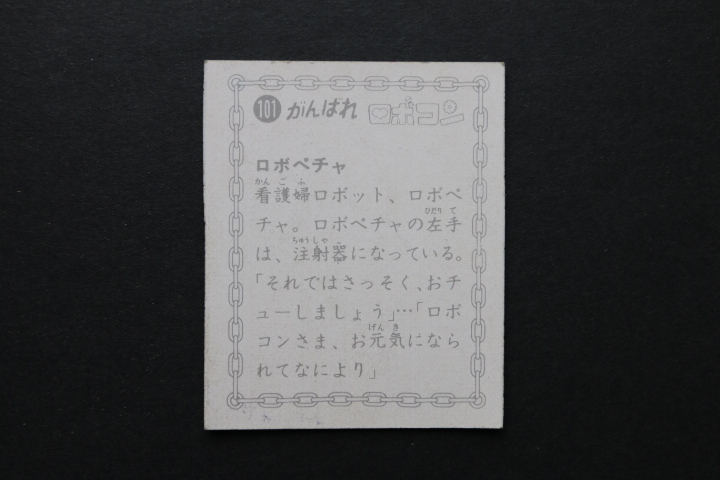 101 がんばれ ロボコン
ロボペチャ
かんごふ
看護婦ロボット、ロボペ
ひだりて
チャ。ロボペチャの左手
ちゅうしゃき
は、注射器になっている。
「それではさっそく、おチ
ューしましょう」…「ロボ
げんき
コンさま、お元気になら
れてなにより」